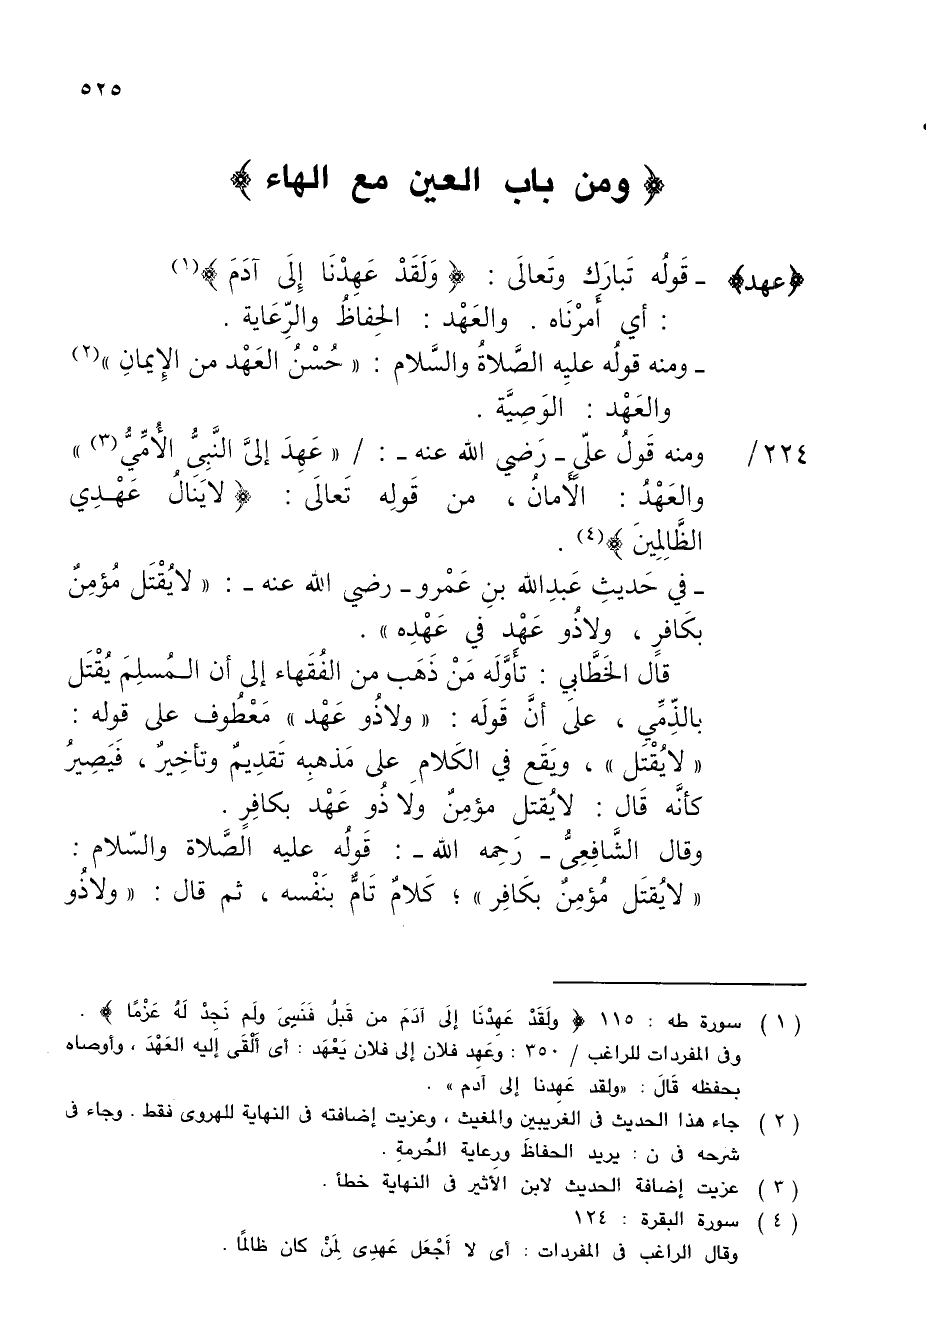 ٥٢٥
﴿ ومن باب العين مع الهاء ﴾
﴿عهد﴾ ـ قَولُه تَبارَك وتَعالَى : ﴿ وَلَقَدْ عَهِدْنَا إِلَى آدَمَ ﴾(١)
: أي أَمرْنَاه . والعَهْد : الحِفاظُ والرِّعَاية .
ـ ومنه قولُه عليه الصَّلاةُ والسَّلام : « حُسْنُ العَهْد من الإِيمانِ »(٢)
والعَهْد : الوَصِيَّة .
٢٢٤/ ومنه قَولُ علّي ـ رَضي الله عنه ـ : / « عَهِدَ إِلىَّ النَّبِىُّ الأُمِّيُّ(٣) »
والعَهْدُ : الأَمانُ ، من قَولِه تَعالَى : ﴿ لايَنَالُ عَهْدِي
الظَّالِمِينَ ﴾(٤) .
ـ في حَديثِ عَبدِالله بنِ عَمْرو ـ رضي الله عنه ـ : « لايُقْتَل مُؤمِنٌ
بكَافرٍ ، ولاذُو عَهْد في عَهْدِه » .
قال الخَطَّابي : تأَوَّلَه مَنْ ذَهَب من الفُقَهاء إلى أن المُسلِمَ يُقْتَل
بالذِّمِّي ، علىَ أنَّ قولَه : « ولاذُو عَهْد » مَعْطُوف على قوله :
« لايُقْتَل » ، ويَقَع في الكَلام على مَذهبِه تَقديمٌ وتأخِيرٌ ، فَيَصِيرُ
كأنَّه قَال : لايُقتل مؤمِنٌ ولا ذُو عَهْد بكافرٍ .
وقال الشَّافِعِىُّ ـ رَحِمه الله ـ : قَولُه عليه الصَّلاة والسّلام :
« لايُقتَل مُؤمِنٌ بكَافِر » ؛ كَلامٌ تَامٌّ بنَفْسه ، ثم قال : « ولاذُو
( ١ ) سورة طه : ١١٥ ﴿ ولَقَدْ عَهِدْنَا إلَى آدَمَ من قَبلُ فَنَسِىَ ولَم نَجِدْ لَهُ عَزْمًا ﴾ .
وفى المفردات للراغب / ٣٥٠ : وعَهِد فلان إلى فلان يَعْهَد : أى ألْقَى إليه العَهْدَ ، وأوصاه
بحفظه قَالَ : «ولقد عَهِدنا إلى آدم » .
( ٢ ) جاء هذا الحديث فى الغريبين والمغيث ، وعزيت إضافته فى النهاية للهروى فقط . وجاء فى
شرحه فى ن : يريد الحفاظَ ورعاية الحُرمةِ .
( ٣ ) عزيت إضافة الحديث لابن الأثير فى النهاية خطأ .
( ٤ ) سورة البقرة : ١٢٤
وقال الراغب فى المفردات : أى لا أَجْعَل عَهدِى لِمَنْ كان ظالمًا .